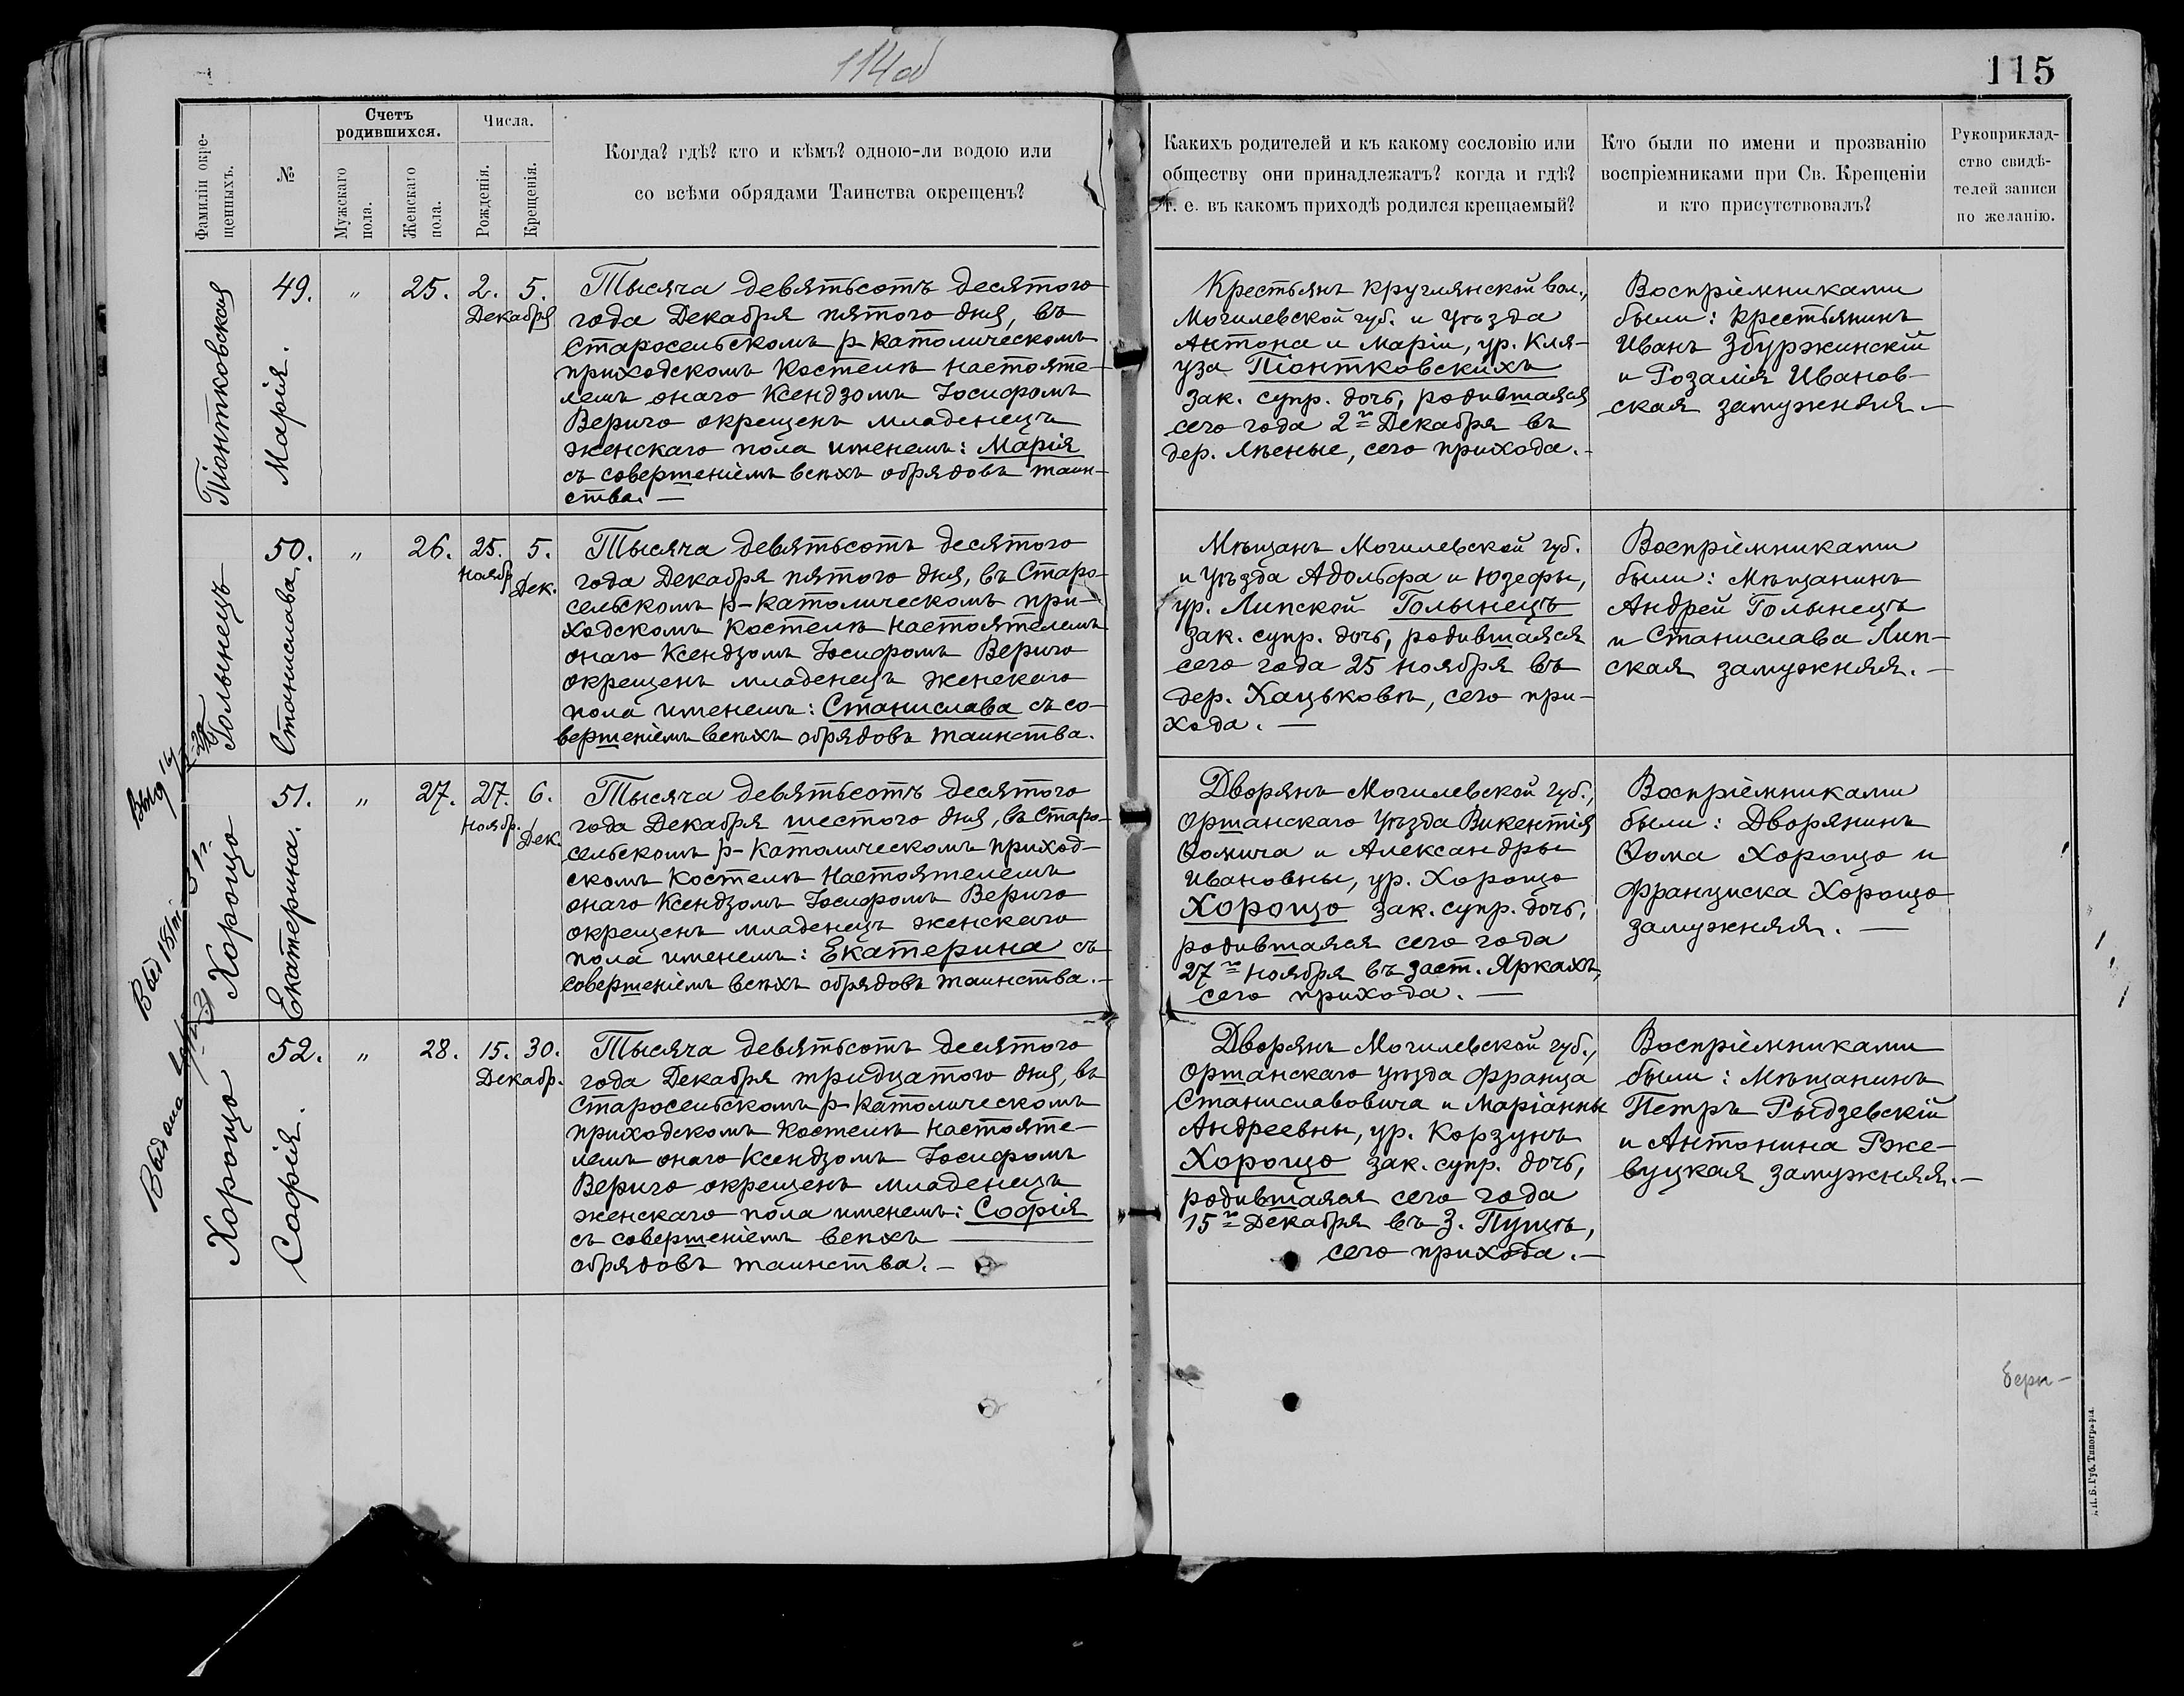 114об
115
Фамиліи окре-
щенныхъ.
№
Счетъ
родившихся.
Мужскаго
пола.
Женскаго
пола.
Числа.
Рожденія.
Крещенія.
Когда? гдѣ? кто и кѣмъ? одною-ли водою или
со всѣми обрядами Таинства окрещенъ?
Какихъ родителей и къ какому сословію или
обществу они принадлежатъ? когда и гдѣ?
т. е. въ какомъ приходѣ родился крещаемый?
Кто были по имени и прозванію
воспріемниками при Св. Крещеніи
и кто присутствовалъ?
Рукоприклад-
ство свидѣ-
телей записи
по желанію.
Піонтковская
49.
Марія.
"
25.
2. 5.
Декабря
Тысяча девятьсотъ десятого
года Декабря пятого дня, въ
Старосельскомъ р-католическомъ
приходскомъ костелѣ настояте-
лемъ онаго Ксендзомъ Іосифомъ
Верыго окрещенъ младенецъ
женскаго пола именемъ: Марія
съ совершеніемъ всѣхъ обрядовъ таин-
ства. —
Крестьянъ Круглянской вол.,
Могилевской губ. и уѣзда
Антона и Маріи, ур. Кля-
уза Піонтковскихъ
зак. супр. дочь, родившаяся
сего года 2го Декабря въ
дер. Лѣсные, сего прихода. -
Воспріемниками
были: крестьянинъ
Иванъ Збуржинскій
и Розалія Иванов-
ская замужняя. —
Голынецъ
50.
Станислава.
"
26.
25. 5.
Ноябр.
Дек.
Тысяча девятьсотъ десятого
года Декабря пятого дня, въ Старо-
сельскомъ р-католическомъ при-
ходскомъ костелѣ настоятелемъ
онаго Ксендзомъ Іосифомъ Верыго
окрещенъ младенецъ женскаго
пола именемъ: Станислава съ со-
вершеніемъ всѣхъ обрядовъ таинства.
Мѣщанъ Могилевской губ.
и уѣзда Адольфа и Юзефы,
ур. Липской Голынецъ
зак. супр. дочь, родившаяся
сего года 25 ноября въ
дер. Хацьковѣ, сего при-
хода. —
Воспріемниками
были: Мѣщанинъ
Андрей Голынецъ
и Станислава Лип-
ская замужняя. —
Хорощо
51.
Екатерина.
"
27.
27. 6.
Ноябр.
Дек.
Тысяча девятьсотъ десятого
года Декабря шестого дня, въ Старо-
сельскомъ р-католическомъ приход-
скомъ костелѣ настоятелемъ
онаго Ксендзомъ Іосифомъ Верыго
окрещенъ младенецъ женскаго
пола именемъ: Екатерина съ
совершеніемъ всѣхъ обрядовъ таинства. -
Дворянъ Могилевской губ.,
Оршанскаго уѣзда Викентія
Ѳомича и Александры
Ивановны, ур. Хорощо
Хорощо зак. супр. дочь,
родившаяся сего года
27го ноября въ заст. Яркахъ,
сего прихода. —
Воспріемниками
были: Дворянинъ
Ѳома Хорощо и
Франциска Хорощо
замужняя. —
Хорощо
52.
Софія.
"
28.
15. 30.
Декабр.
Тысяча девятьсотъ десятого
года Декабря тридцатого дня, въ
Старосельскомъ р-католическомъ
приходскомъ костелѣ настояте-
лемъ онаго Ксендзомъ Іосифомъ
Верыго окрещенъ младенецъ
женскаго пола именемъ: Софія
съ совершеніемъ всѣхъ —
обрядовъ таинства. —
Дворянъ Могилевской губ.,
Оршанскаго уѣзда Франца
Станиславовича и Маріанны
Андреевны, ур. Корзунъ
Хорощо зак. супр. дочь,
родившаяся сего года
15го Декабря въ З. Пущѣ,
сего прихода. —
Воспріемниками
были: Мѣщанинъ
Петръ Рыдзевскій
и Антонина Рже-
вуцкая замужняя. —
Губ. Типографія.